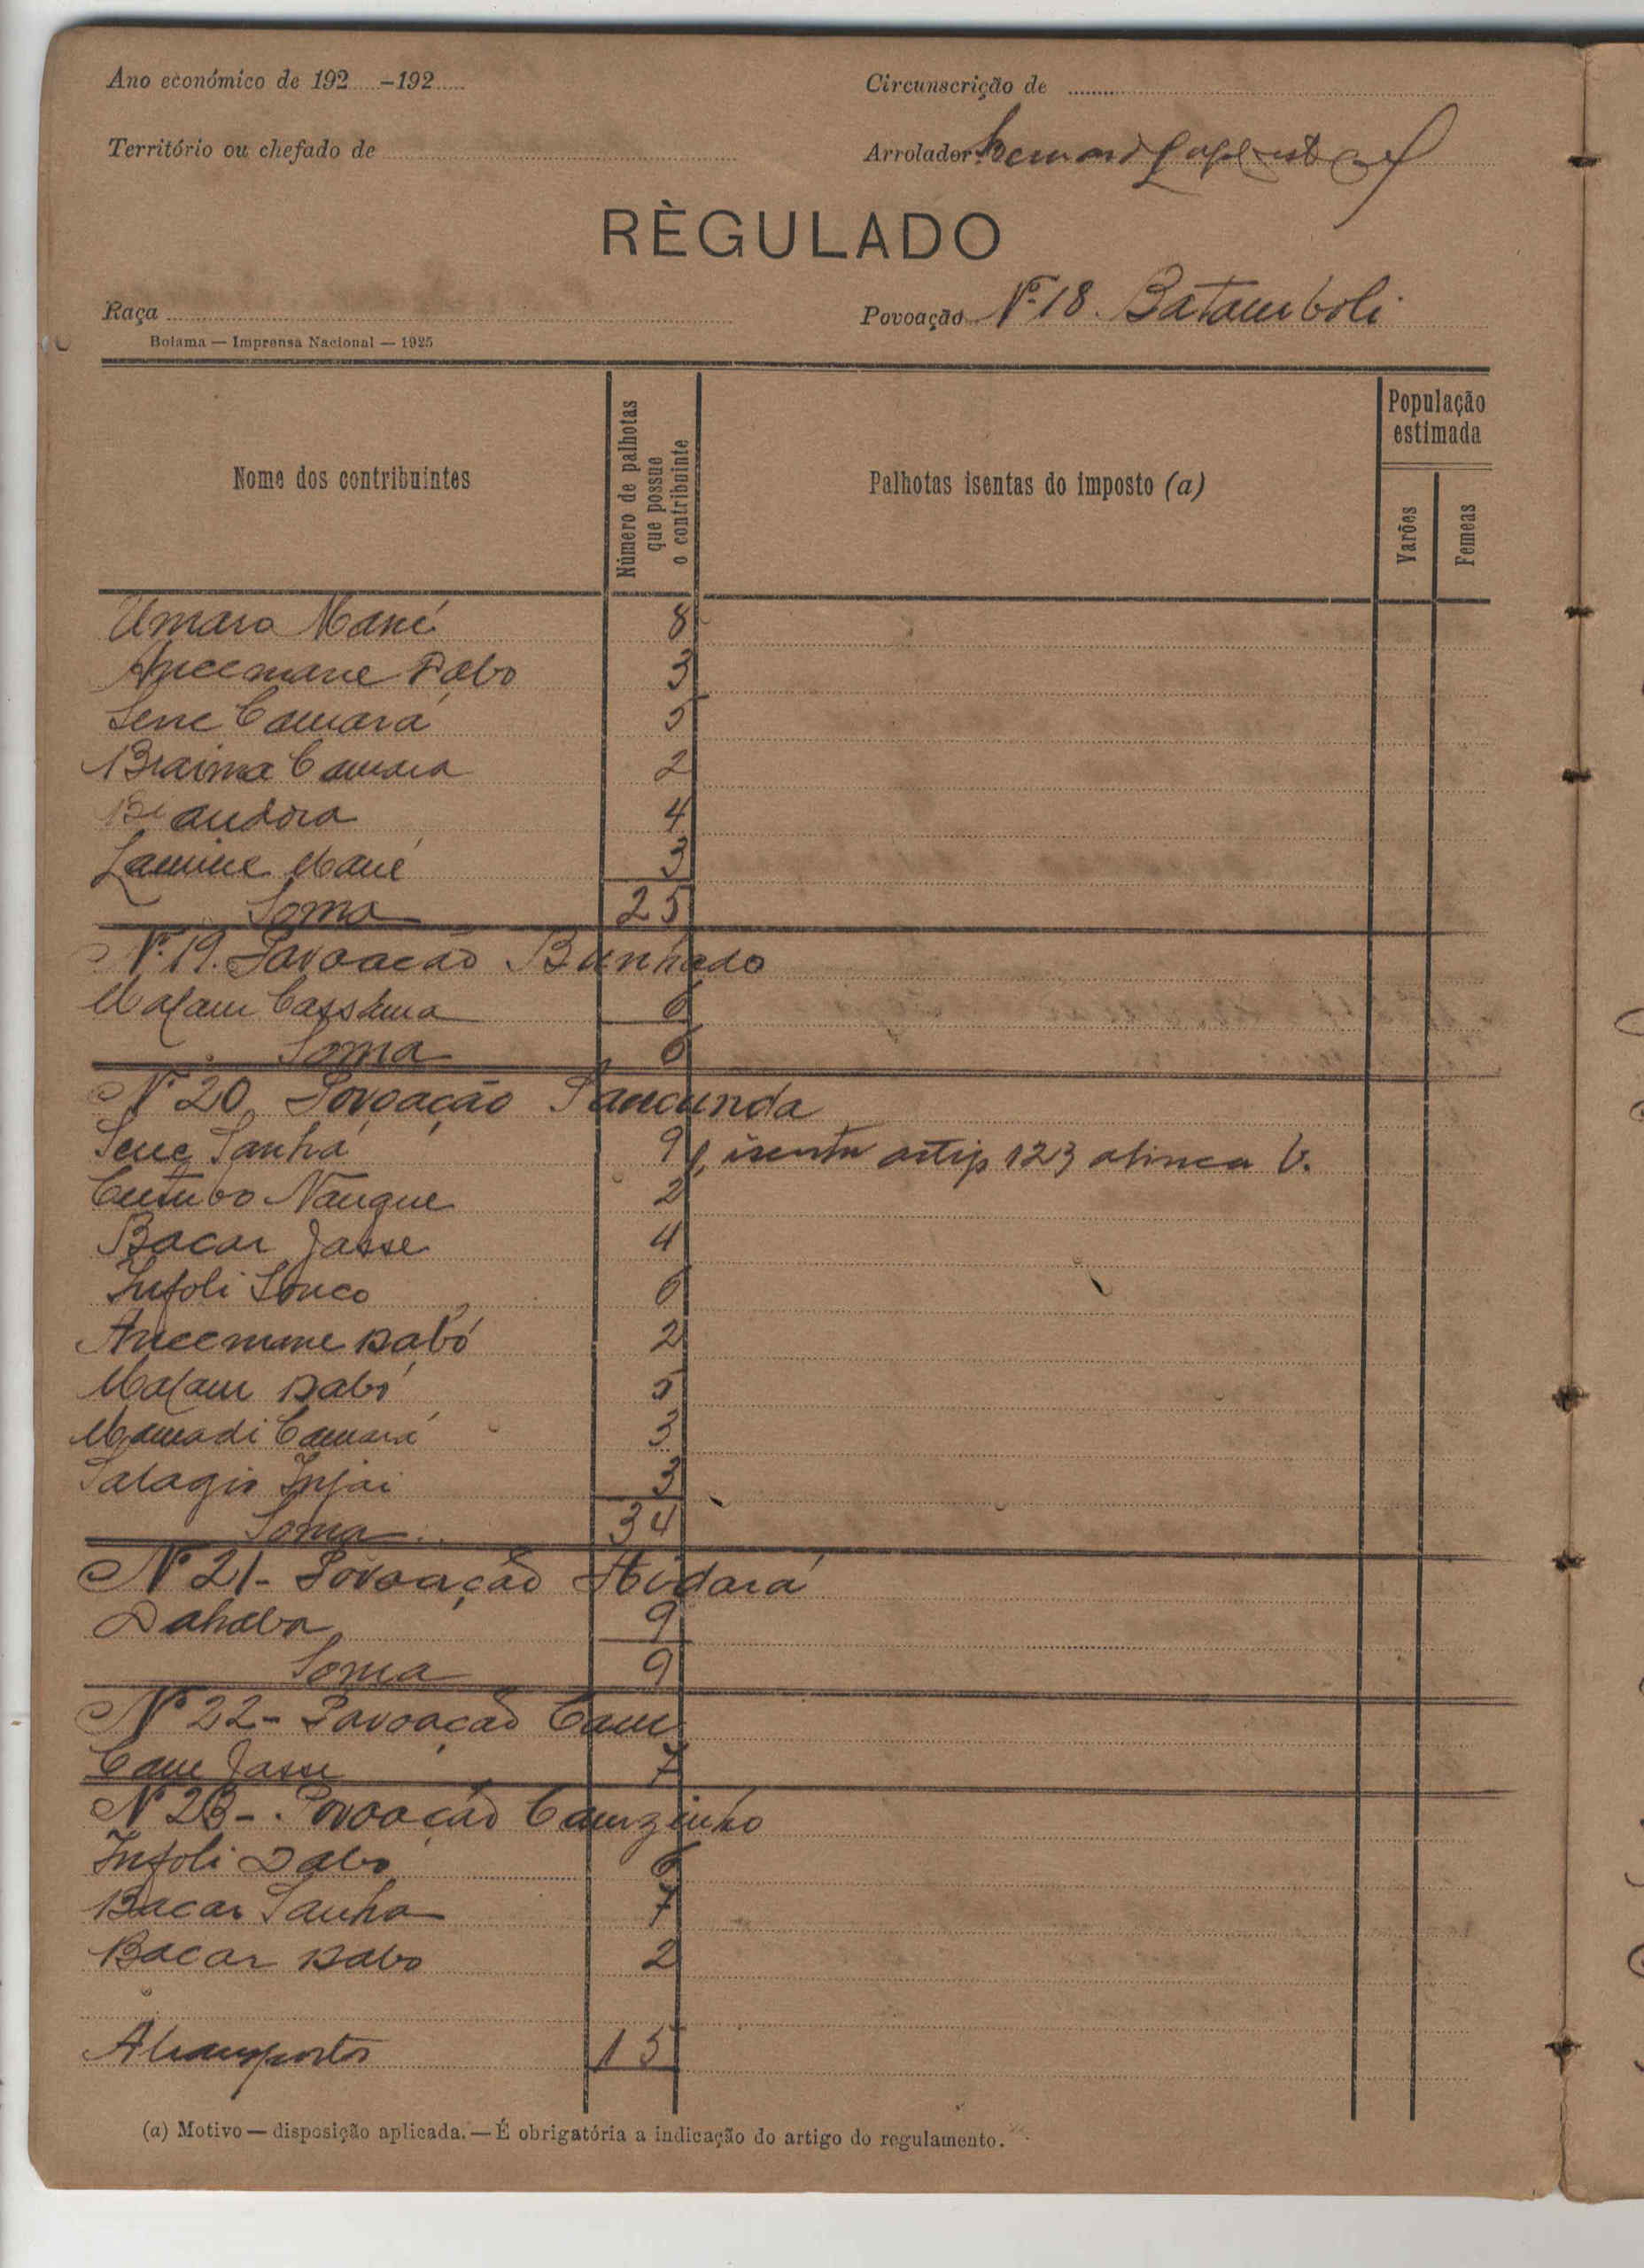 Ano económico de 192 -192
Circunscrição de
Território ou chefado de
Arrolador
RÈGULADO
Raça
Povoação Nº 18. Batamboli
Bolama — Imprensa Nacional — 1925
Nome dos contribuintes
Número de palhotas que possue o contribuinte
Palhotas isentas do imposto (a)
População estimada
Varões
Femeas
Umaro Mané 8
Ancemane Dabo 3
Sene Camará 5
Braima Camara 2
4
Lamine Mané 3
Soma 25
Nº 19. Povoacão Banhado
Malam Cassama 6
Soma 6
Nº 20 Povoação Sancunda
Sene Sanhá 9 1, isenta artip 123 alinea b.
Cutubo Nanque 2
Bacar Jasse 4
Infoli Sonco 6
Ancemane Dabó 2
Malam Dabó 5
Mamadi Camará 3
Salagio Injai 3
Soma 34
Nº 21- Povoação Aidará
Dahaba 9
Soma 9
Nº 22- Povoação Cam
Cam Jasse 7
Nº 23- Povoação Camzinho
Infoli Dabó 6
Bacar Sanha 7
Bacar Dabo 2
A transportar 15
(a) Motivo — disposição aplicada. — É obrigatória a indicação do artigo do regulamento.